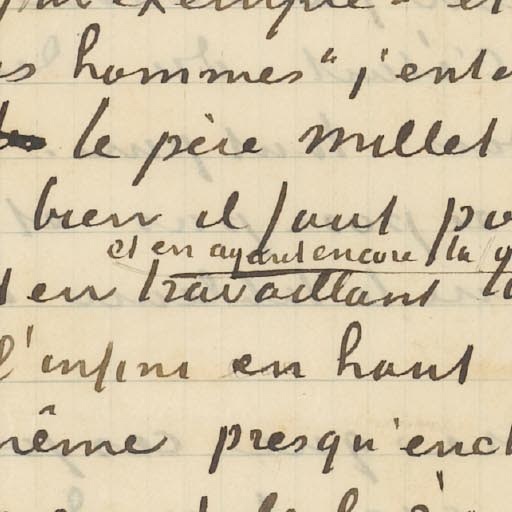 par exemple et
hommes" j'ente
le père Millet
bien il faut po
et en ayant encore la
en travaillant
l'infini en haut
même presqu'encl